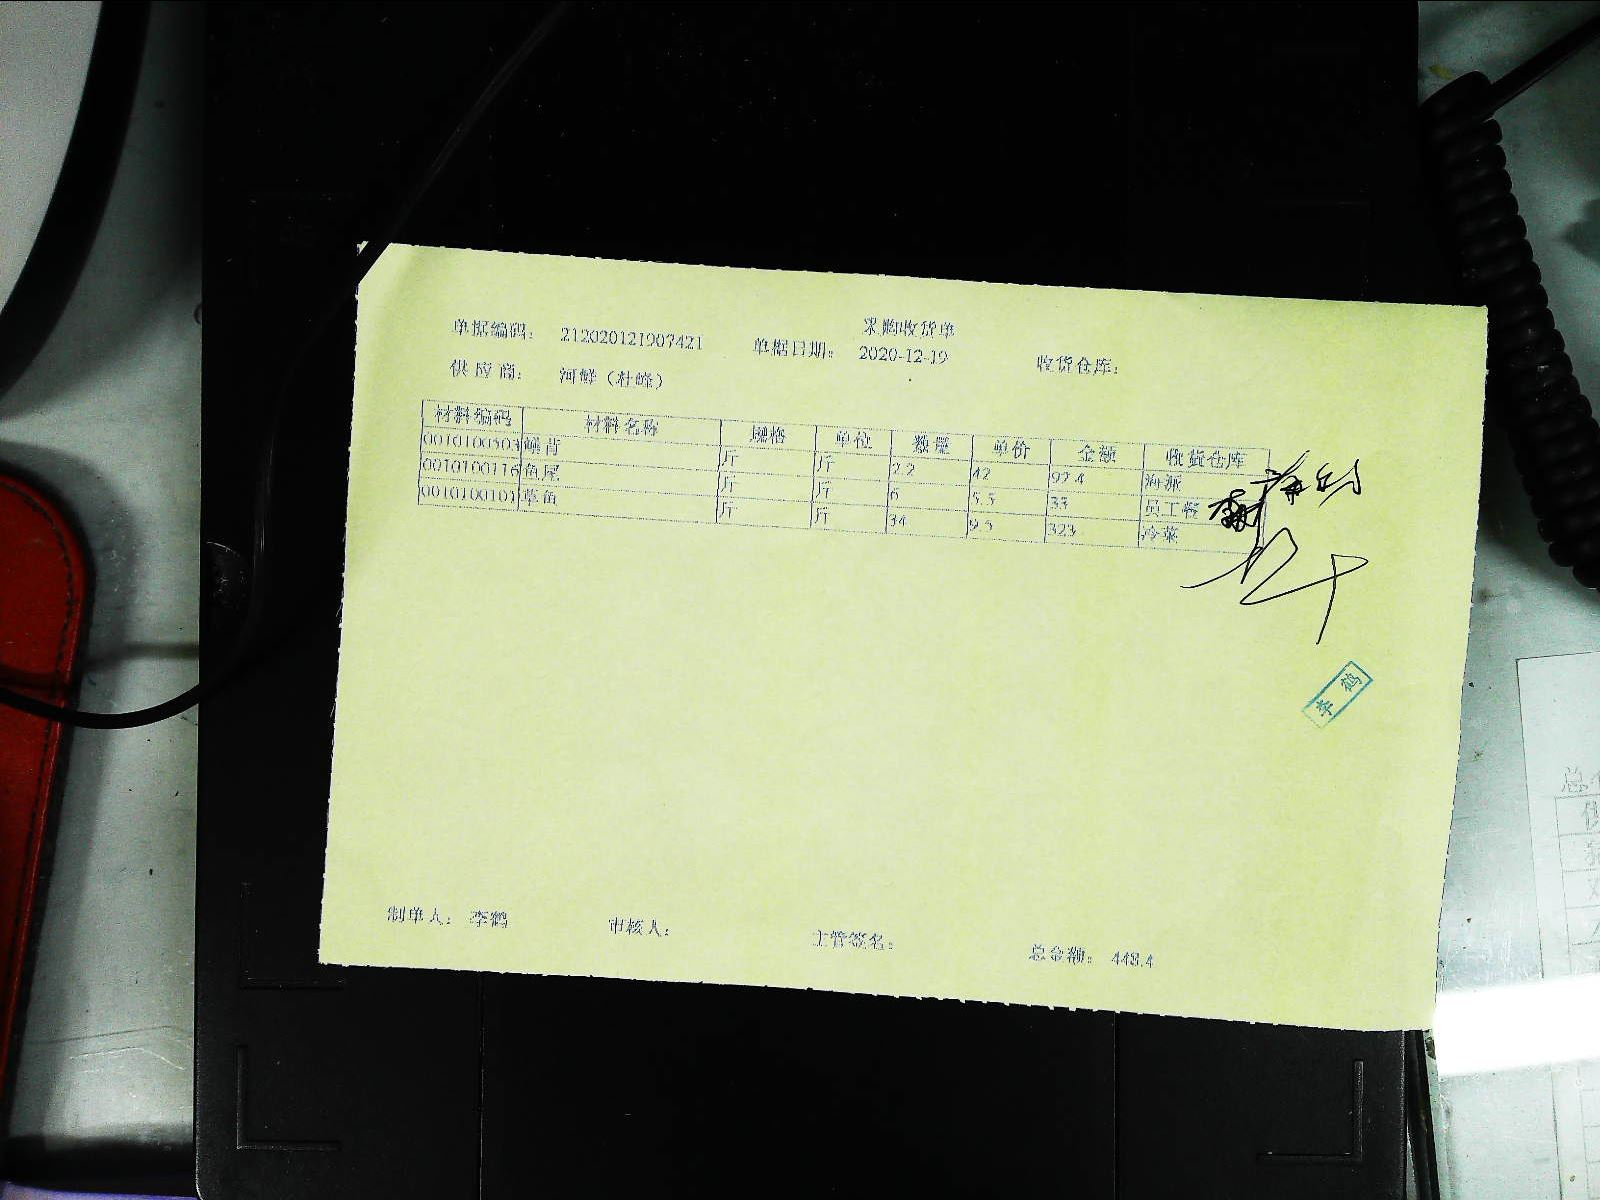 采购收货单
单据编码: 212020121907421 单据日期: 2020-12-19 收货仓库:
供应商: 河鲜（杜峰）
材料编码 材料名称 规格 单位 数量 单价 金额 收货仓库
0010100503 鳝背 斤 斤 2.2 42 92.4 海派
0010100116 鱼尾 斤 斤 6 5.5 33 员工餐
0010100101 草鱼 斤 斤 34 9.5 323 冷菜
李鹤
制单人: 李鹤 审核人: 主管签名: 总金额: 448.4